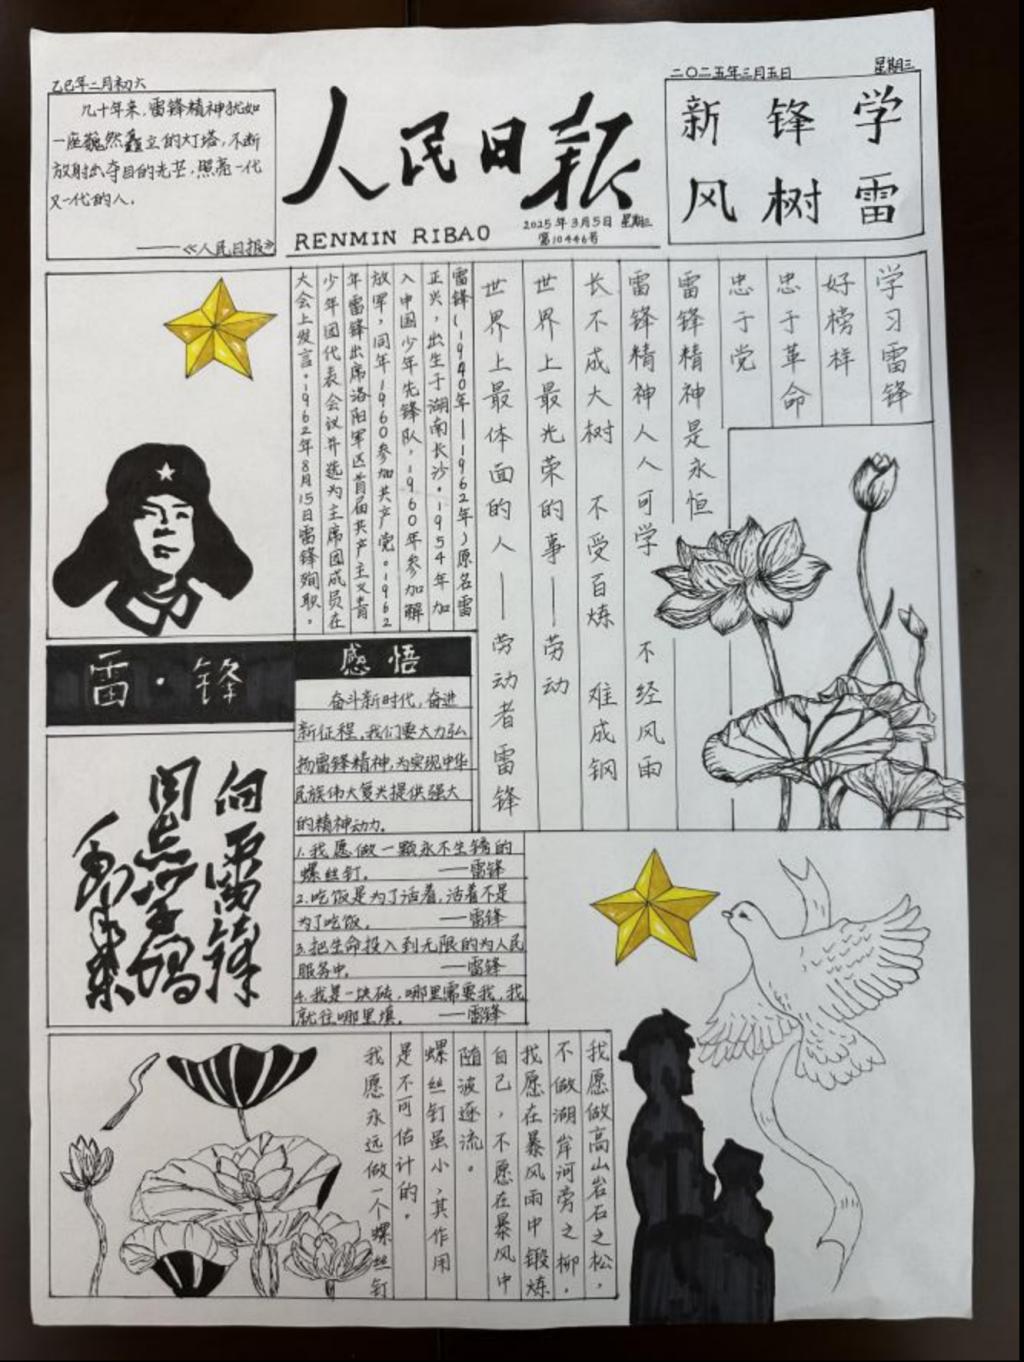 乙巳年二月初六
几十年来，雷锋精神犹如
一座巍然矗立的灯塔，不断
放射出夺目的光芒，照亮一代
又一代的人。
——《人民日报》
人民日报
RENMIN RIBAO
2025年3月5日 星期三
第10446号
二〇二五年三月五日
星期三
学雷
锋树
新风
学习雷锋
好榜样
忠于革命
忠于党
雷锋精神是永恒
雷锋精神人人可学 不经风雨
长不成大树 不受百炼 难成钢
世界上最光荣的事——劳动
世界上最体面的人——劳动者雷锋
雷锋（1940年—1962年）原名雷
正兴，出生于湖南长沙。1954年加
入中国少年先锋队，1960年参加解
放军，同年1960参加共产党。1962
年雷锋出席洛阳军区首届共产主义青
少年团代表会议并选为主席团成员在
大会上发言。1962年8月15日雷锋殉职。
雷·锋
感悟
奋斗新时代，奋进
新征程，我们要大力弘
扬雷锋精神，为实现中华
民族伟大复兴提供强大
的精神动力。
向雷锋
同志学习
毛泽东
1.我愿做一颗永不生锈的
螺丝钉。 ——雷锋
2.吃饭是为了活着，活着不是
为了吃饭。 ——雷锋
3.把生命投入到无限的为人民
服务中。 ——雷锋
4.我是一块砖，哪里需要我，我
就往哪里填。 ——雷锋
我愿做高山岩石之松，
不做湖岸河旁之柳，
我愿在暴风雨中锻炼
自己，不愿在暴风中
随波逐流。
螺丝钉虽小，其作用
是不可估计的。
我愿永远做一个螺丝钉